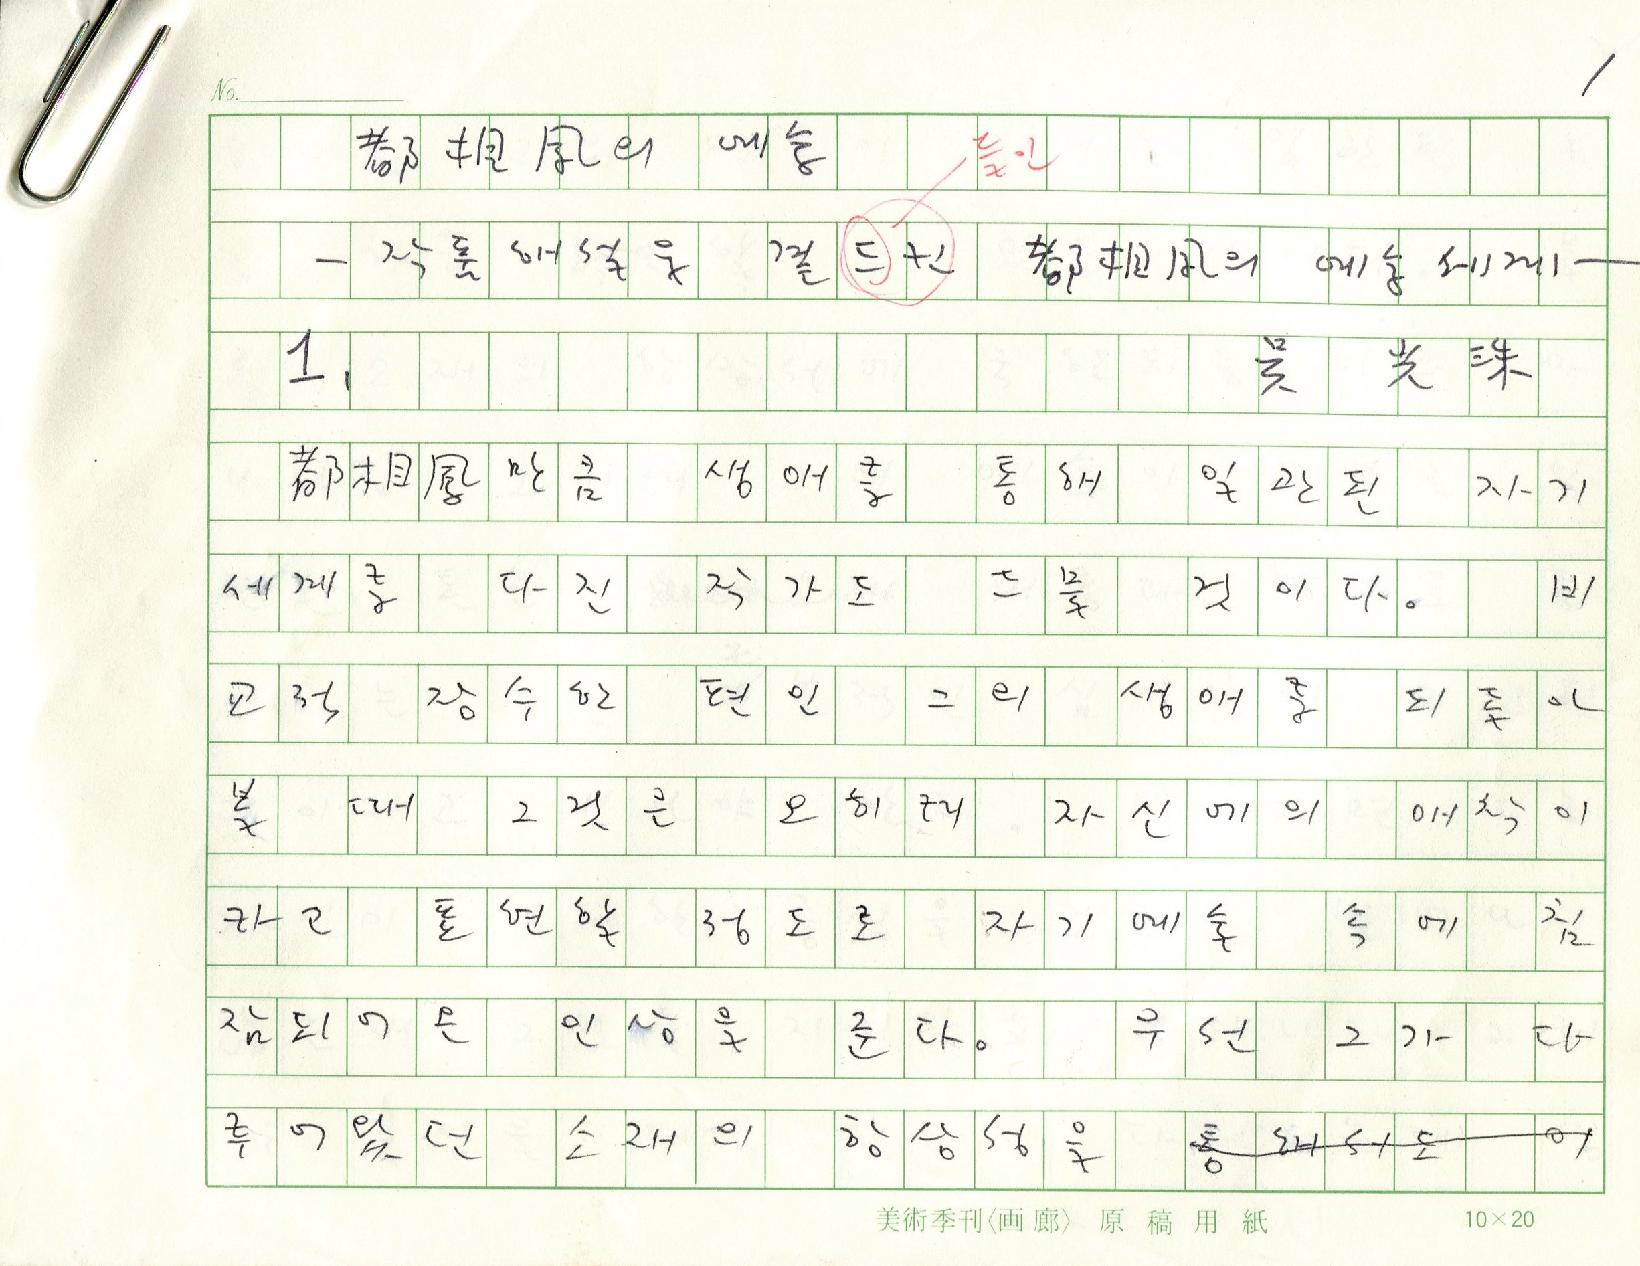 1
No.
都相鳳의 예술
들인
— 작품해설을 곁드린 都相鳳의 예술세계 —
1. 吳光洙
都相鳳만큼 생애를 통해 일관된 자기
세계를 다진 작가도 드물 것이다. 비
교적 장수한 편인 그의 생애를 되돌아
볼 때 그것은 오히려 자신에의 애착이
라고 표현할 정도로 자기 예술 속에 침
잠되어온 인상을 준다. 우선 그가 다
루어왔던 소재의 항상성을 통해서도 이
美術季刊〈画廊〉 原稿用紙 10×20